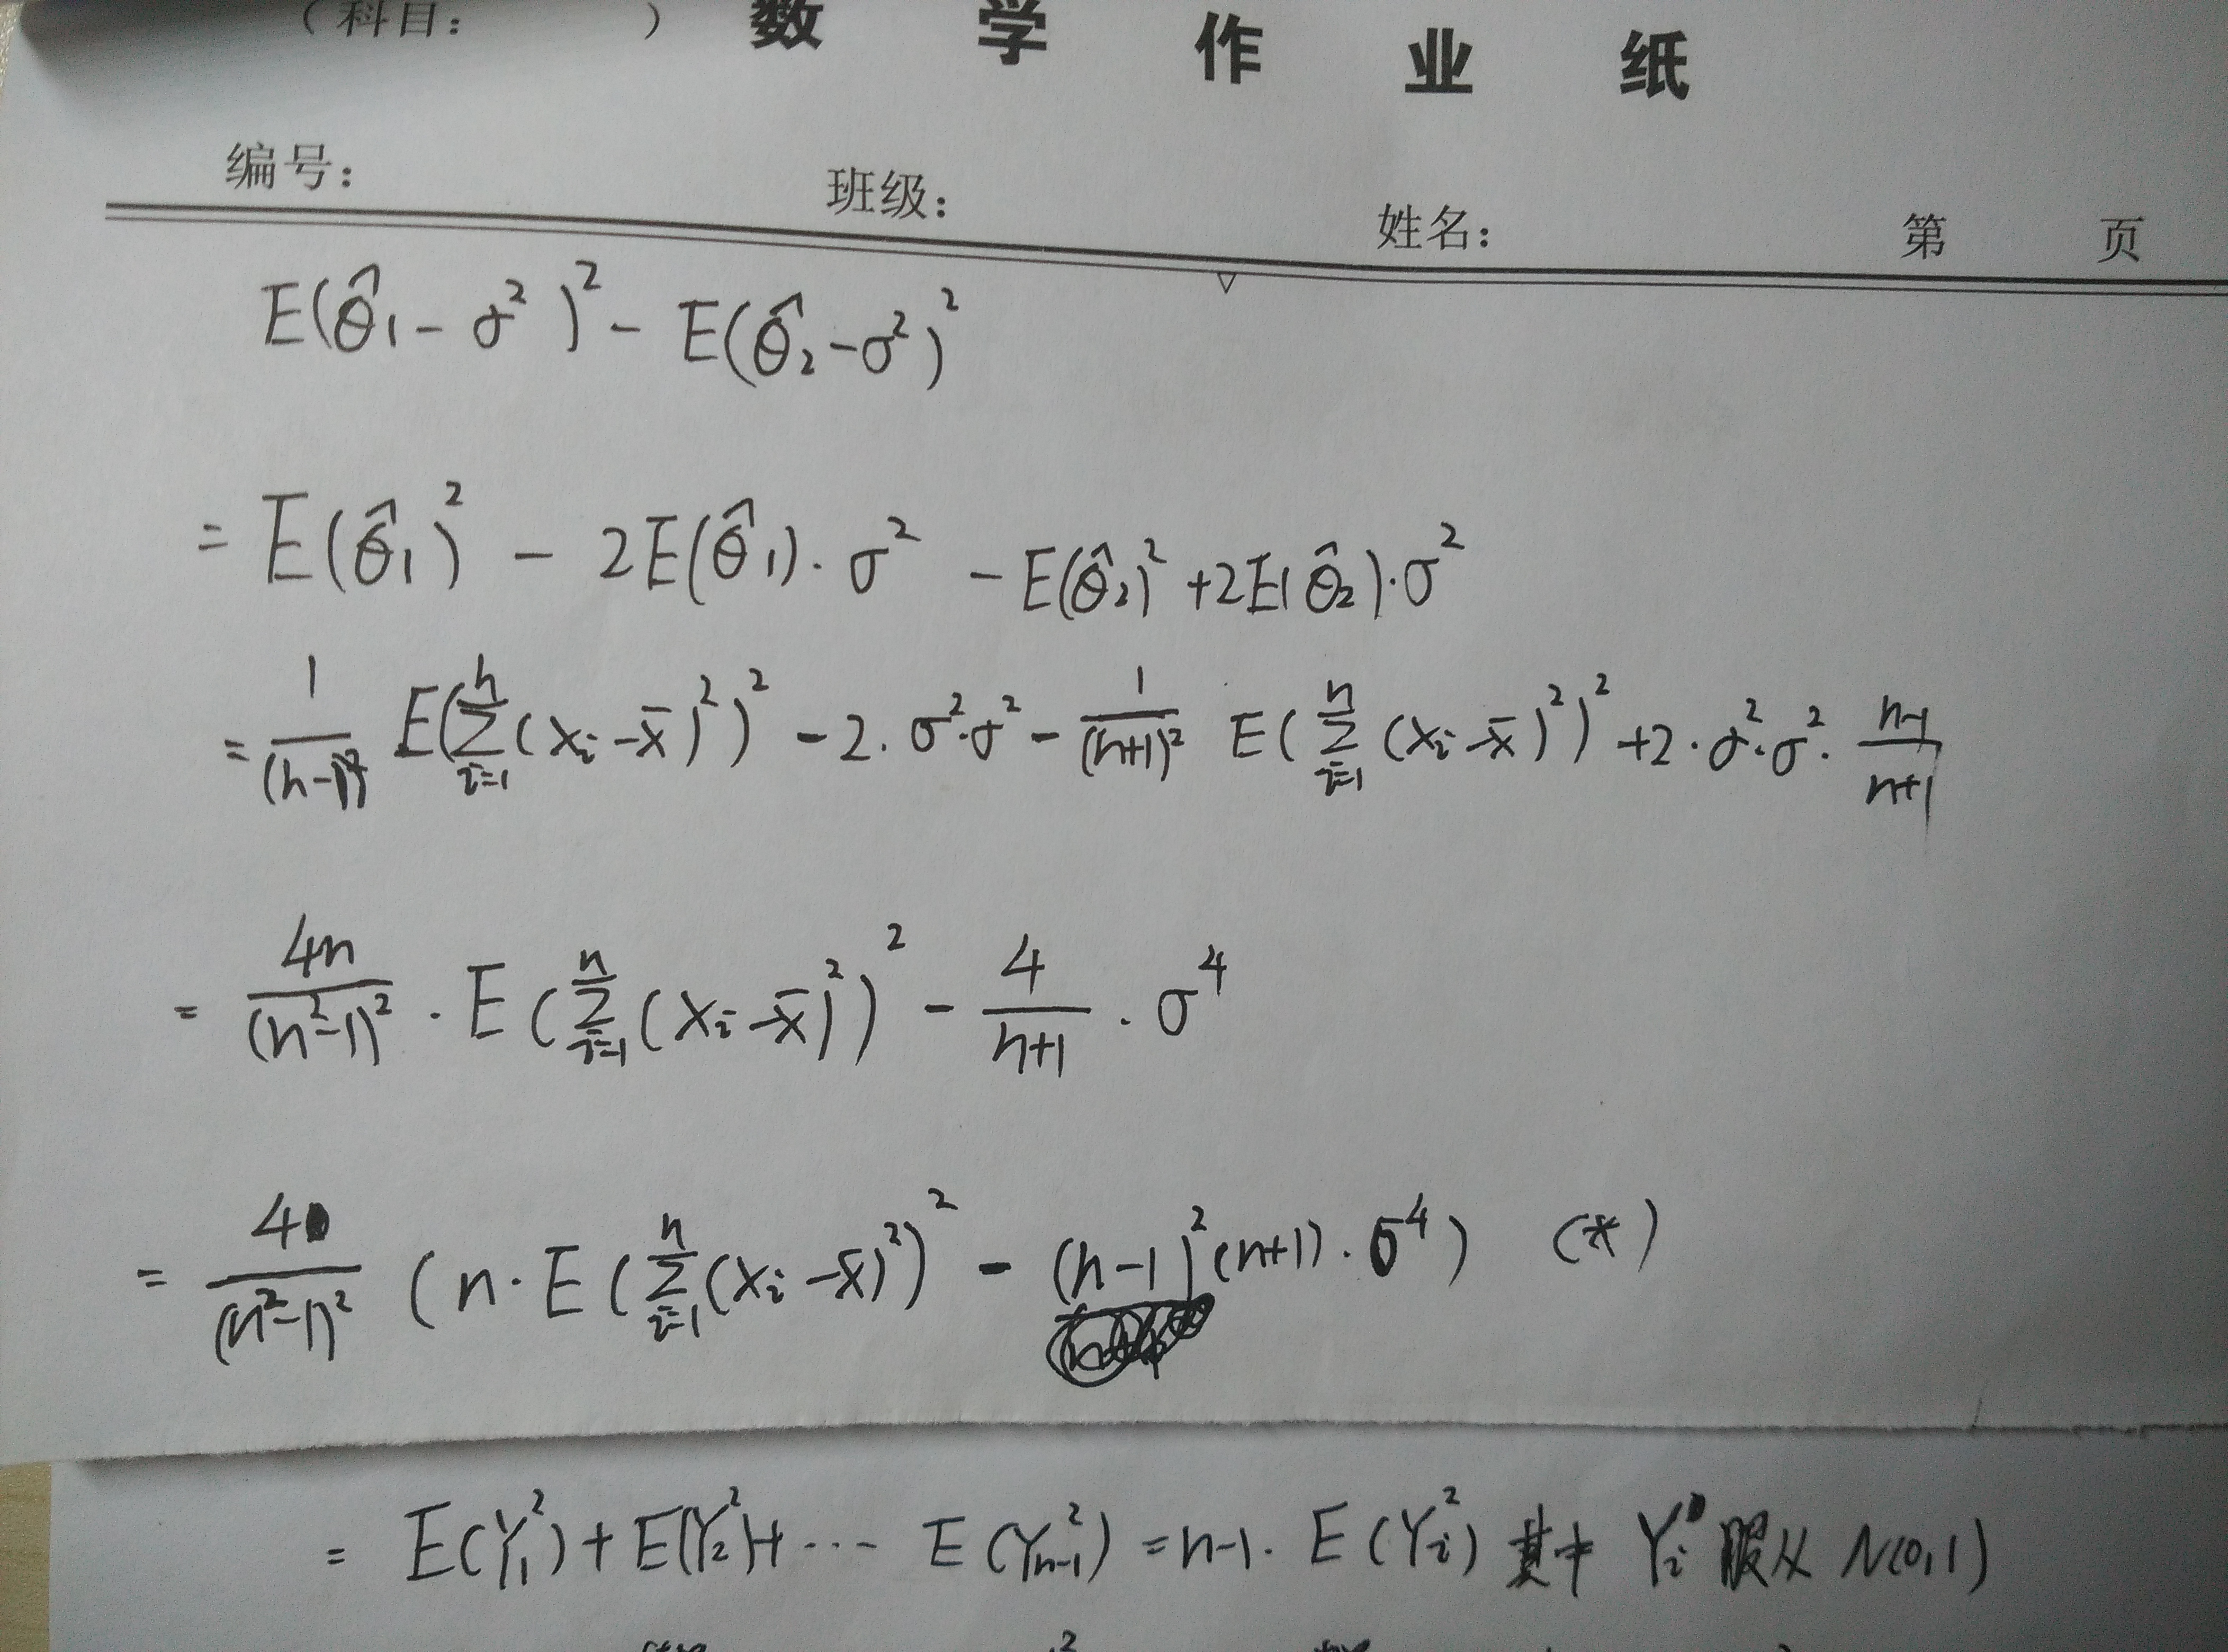 （科目： ） 数学作业纸
编号： 班级： 姓名： 第 页
E(θ̂₁ - σ²)² - E(θ̂₂ - σ²)²
= E(θ̂₁)² - 2E(θ̂₁)·σ² - E(θ̂₂)² + 2E(θ̂₂)·σ²
= 1/(n-1)² E(∑_{i=1}^{n}(x_i - x̄)²)² - 2·σ²·σ² - 1/(n+1)² E(∑_{i=1}^{n}(x_i - x̄)²)² + 2·σ²·σ²·(n-1)/(n+1)
= 4n/(n²-1)² · E(∑_{i=1}^{n}(x_i - x̄)²)² - 4/(n+1) · σ⁴
= 4/(n²-1)² (n·E(∑_{i=1}^{n}(x_i - x̄)²)² - (n-1)²(n+1)·σ⁴) (*)
= E(Y₁²) + E(Y₂²) + ··· E(Y_{n-1}²) = n-1 · E(Y_i²) 其中 Y_i 服从 N(0,1)